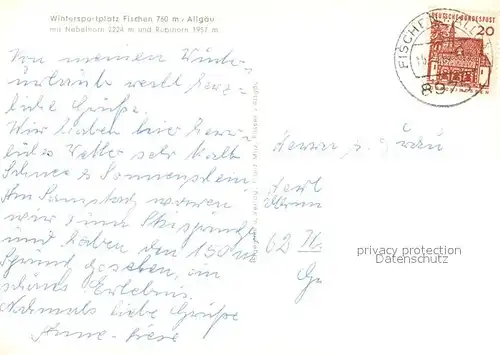 Wintersportplatz Fischen 760 m - Allgäu
mit Nebelhorn 2224 m und Rubihorn 1957 m
Von meinem Winter-
urlaub recht herz-
liche Grüße.
Wir haben hier herr-
liches Wetter sehr kalt
Schnee & Sonnenschein
Am Samstag waren
wir zum Skispringen
und haben den 150 m
Sprung gesehen, ein
schönes Erlebnis.
Nochmals liebe Grüße
Anne-Liese
FISCHEN
897
DEUTSCHE BUNDESPOST
20
Herrn u. Frau
Karl
62
privacy protection
Datenschutz